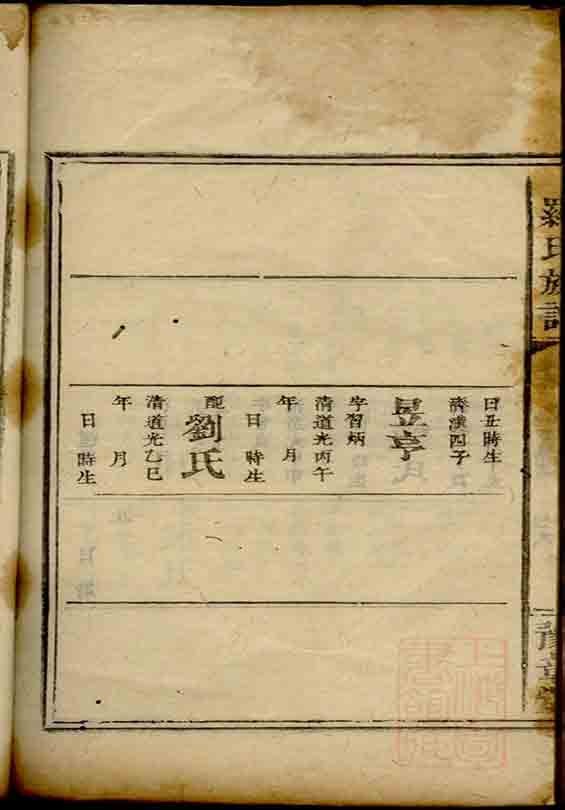 羅氏族譜
豫章堂
日丑時生
濟漢四子
昱亭
字習炳
清道光丙午
年 月
日 時生
配
劉氏
清道光乙巳
年 月
日 時生